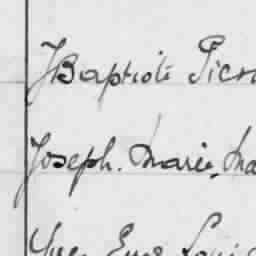 JBaptiste Pier
Joseph. Marie, Ma
Yves